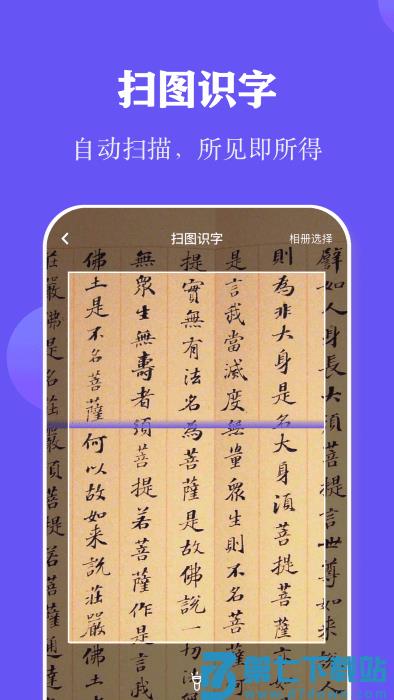 扫图识字
自动扫描，所见即所得
扫图识字
相册选择
譬如人身長大須菩提言世尊如来
則為非大身是名大身須菩提菩薩亦
是言我當滅度無量衆生則不名菩薩
提實無有法名為菩薩是故佛說一切法
無眾生無壽者須菩提若菩薩作是言我
佛土是不名菩薩何以故如来說莊嚴佛土
是名莊嚴須菩提菩薩通達
第七下载站